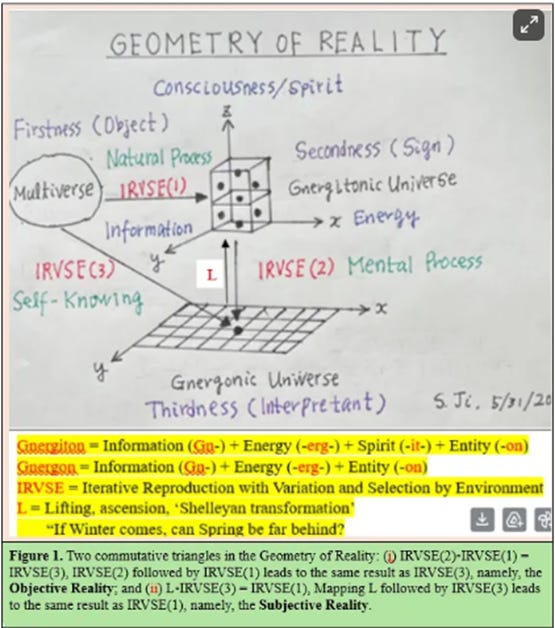 GEOMETRY OF REALITY
Consciousness/Spirit
z
Firstness (Object)
Natural Process
Secondness (Sign)
Multiverse
IRVSE(1)
Gnergitonic Universe
x Energy
Information
y
IRVSE(3)
L
IRVSE(2) Mental Process
Self-Knowing
x
y
Gnergonic Universe
Thirdness (Interpretant)
S. Ji, 5/31/20
Gnergiton = Information (Gn-) + Energy (-erg-) + Spirit (-it-) + Entity (-on)
Gnergon = Information (Gn-) + Energy (-erg-) + Entity (-on)
IRVSE = Iterative Reproduction with Variation and Selection by Environment
L = Lifting, ascension, ‘Shelleyan transformation’
“If Winter comes, can Spring be far behind?
Figure 1. Two commutative triangles in the Geometry of Reality: (i) IRVSE(2)·IRVSE(1) =
IRVSE(3), IRVSE(2) followed by IRVSE(1) leads to the same result as IRVSE(3), namely, the
Objective Reality; and (ii) L·IRVSE(3) = IRVSE(1), Mapping L followed by IRVSE(3) leads
to the same result as IRVSE(1), namely, the Subjective Reality.